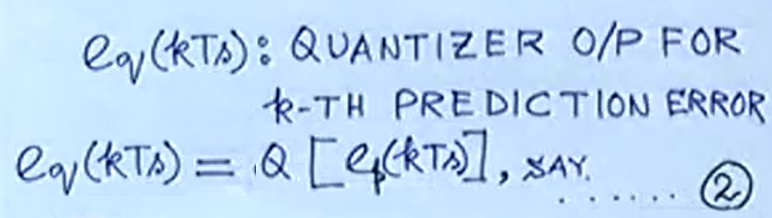 eq(kTs): QUANTIZER O/P FOR
k-TH PREDICTION ERROR
eq(kTs) = Q [ep(kTs)], SAY. ...... ②